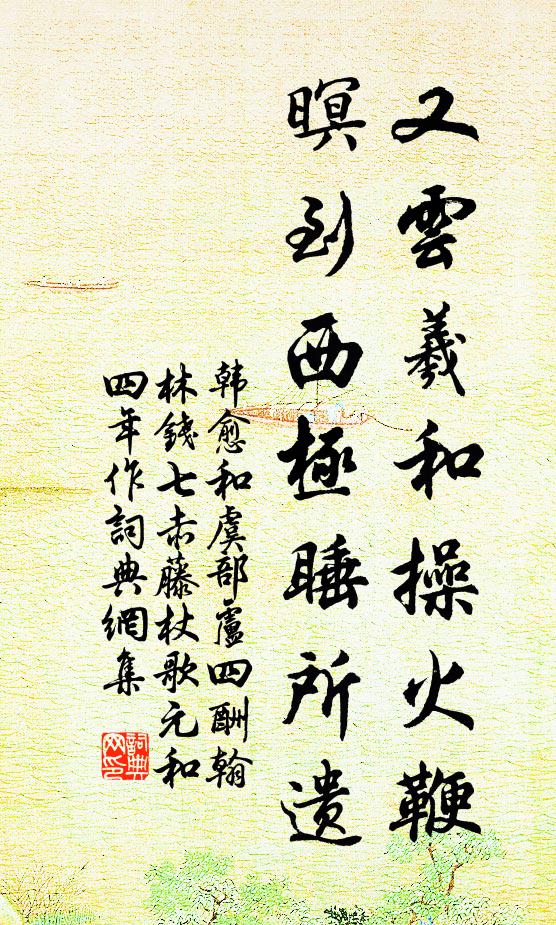 又雲羲和操火鞭
暝到西極睡所遺
韩愈和虞部盧四酬翰
林錢七赤藤杖歌元和
四年作詞典網集
詞典
网印